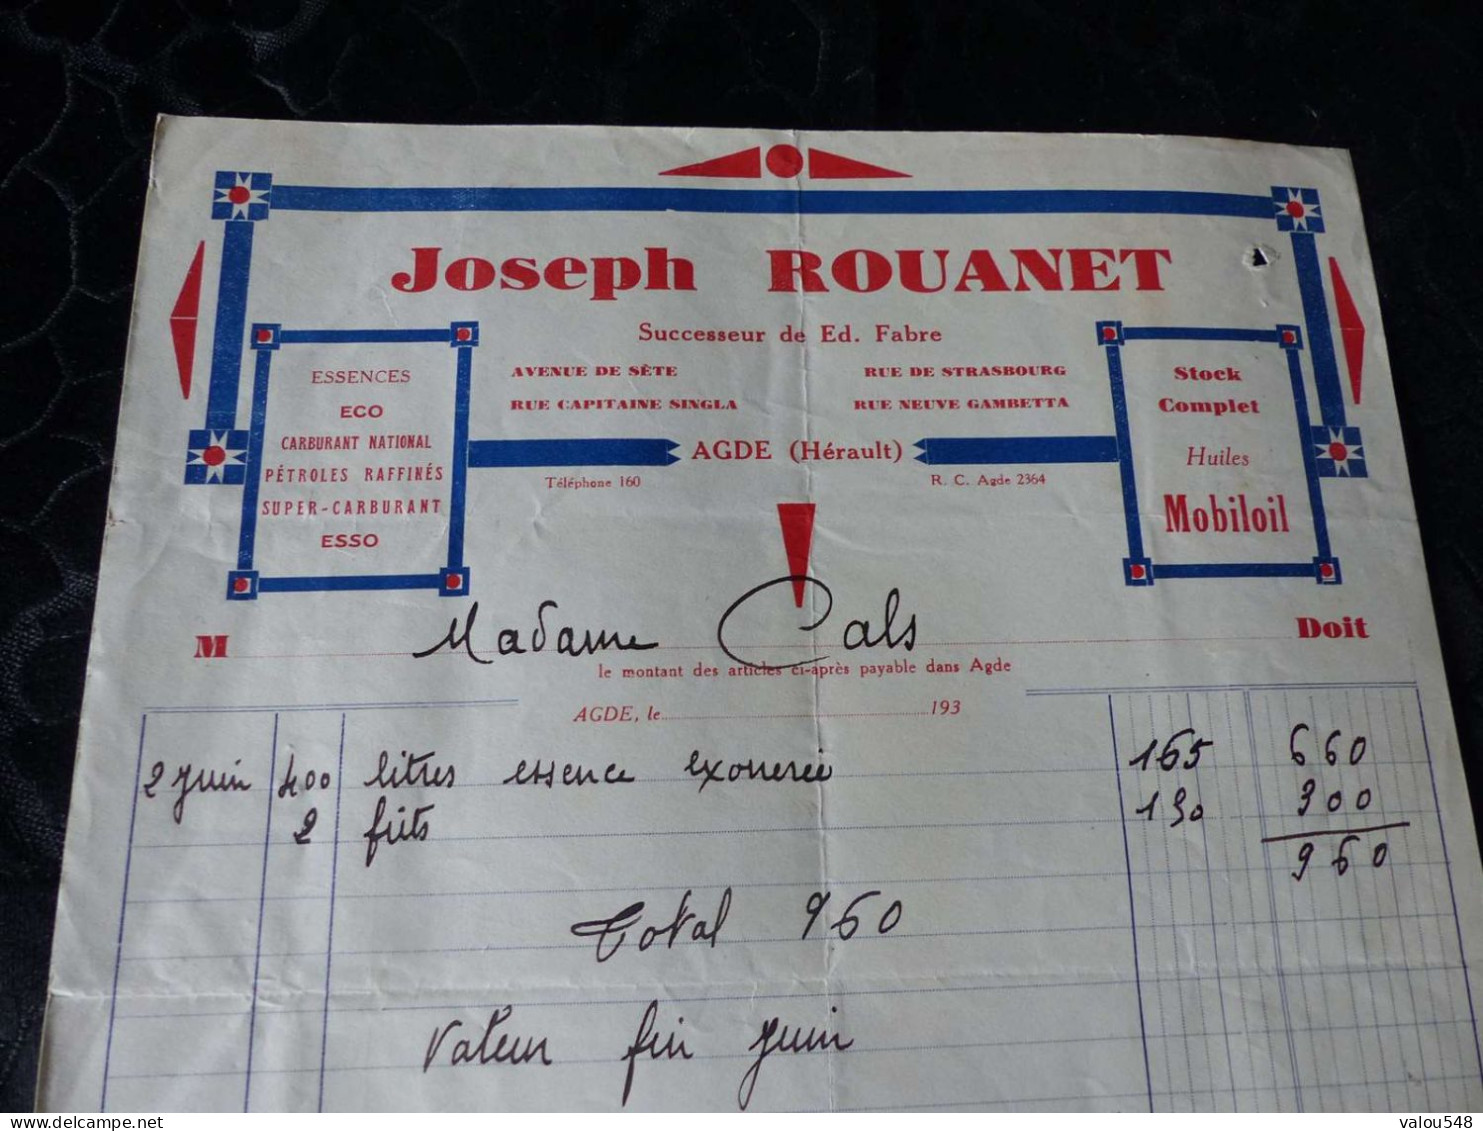 Joseph ROUANET
Successeur de Ed. Fabre
AVENUE DE SÈTE
RUE DE STRASBOURG
RUE CAPITAINE SINGLA
RUE NEUVE GAMBETTA
AGDE (Hérault)
Téléphone 160
R. C. Agde 2364
ESSENCES
ECO
CARBURANT NATIONAL
PÉTROLES RAFFINÉS
SUPER-CARBURANT
ESSO
Stock
Complet
Huiles
Mobiloil
M Madame Cals Doit
le montant des articles ci-après payable dans Agde
AGDE, le 193
2 Juin 400 litres essence exonerée 165 660
2 futs 150 300
960
Total 960
Valeur fin Juin
valou548